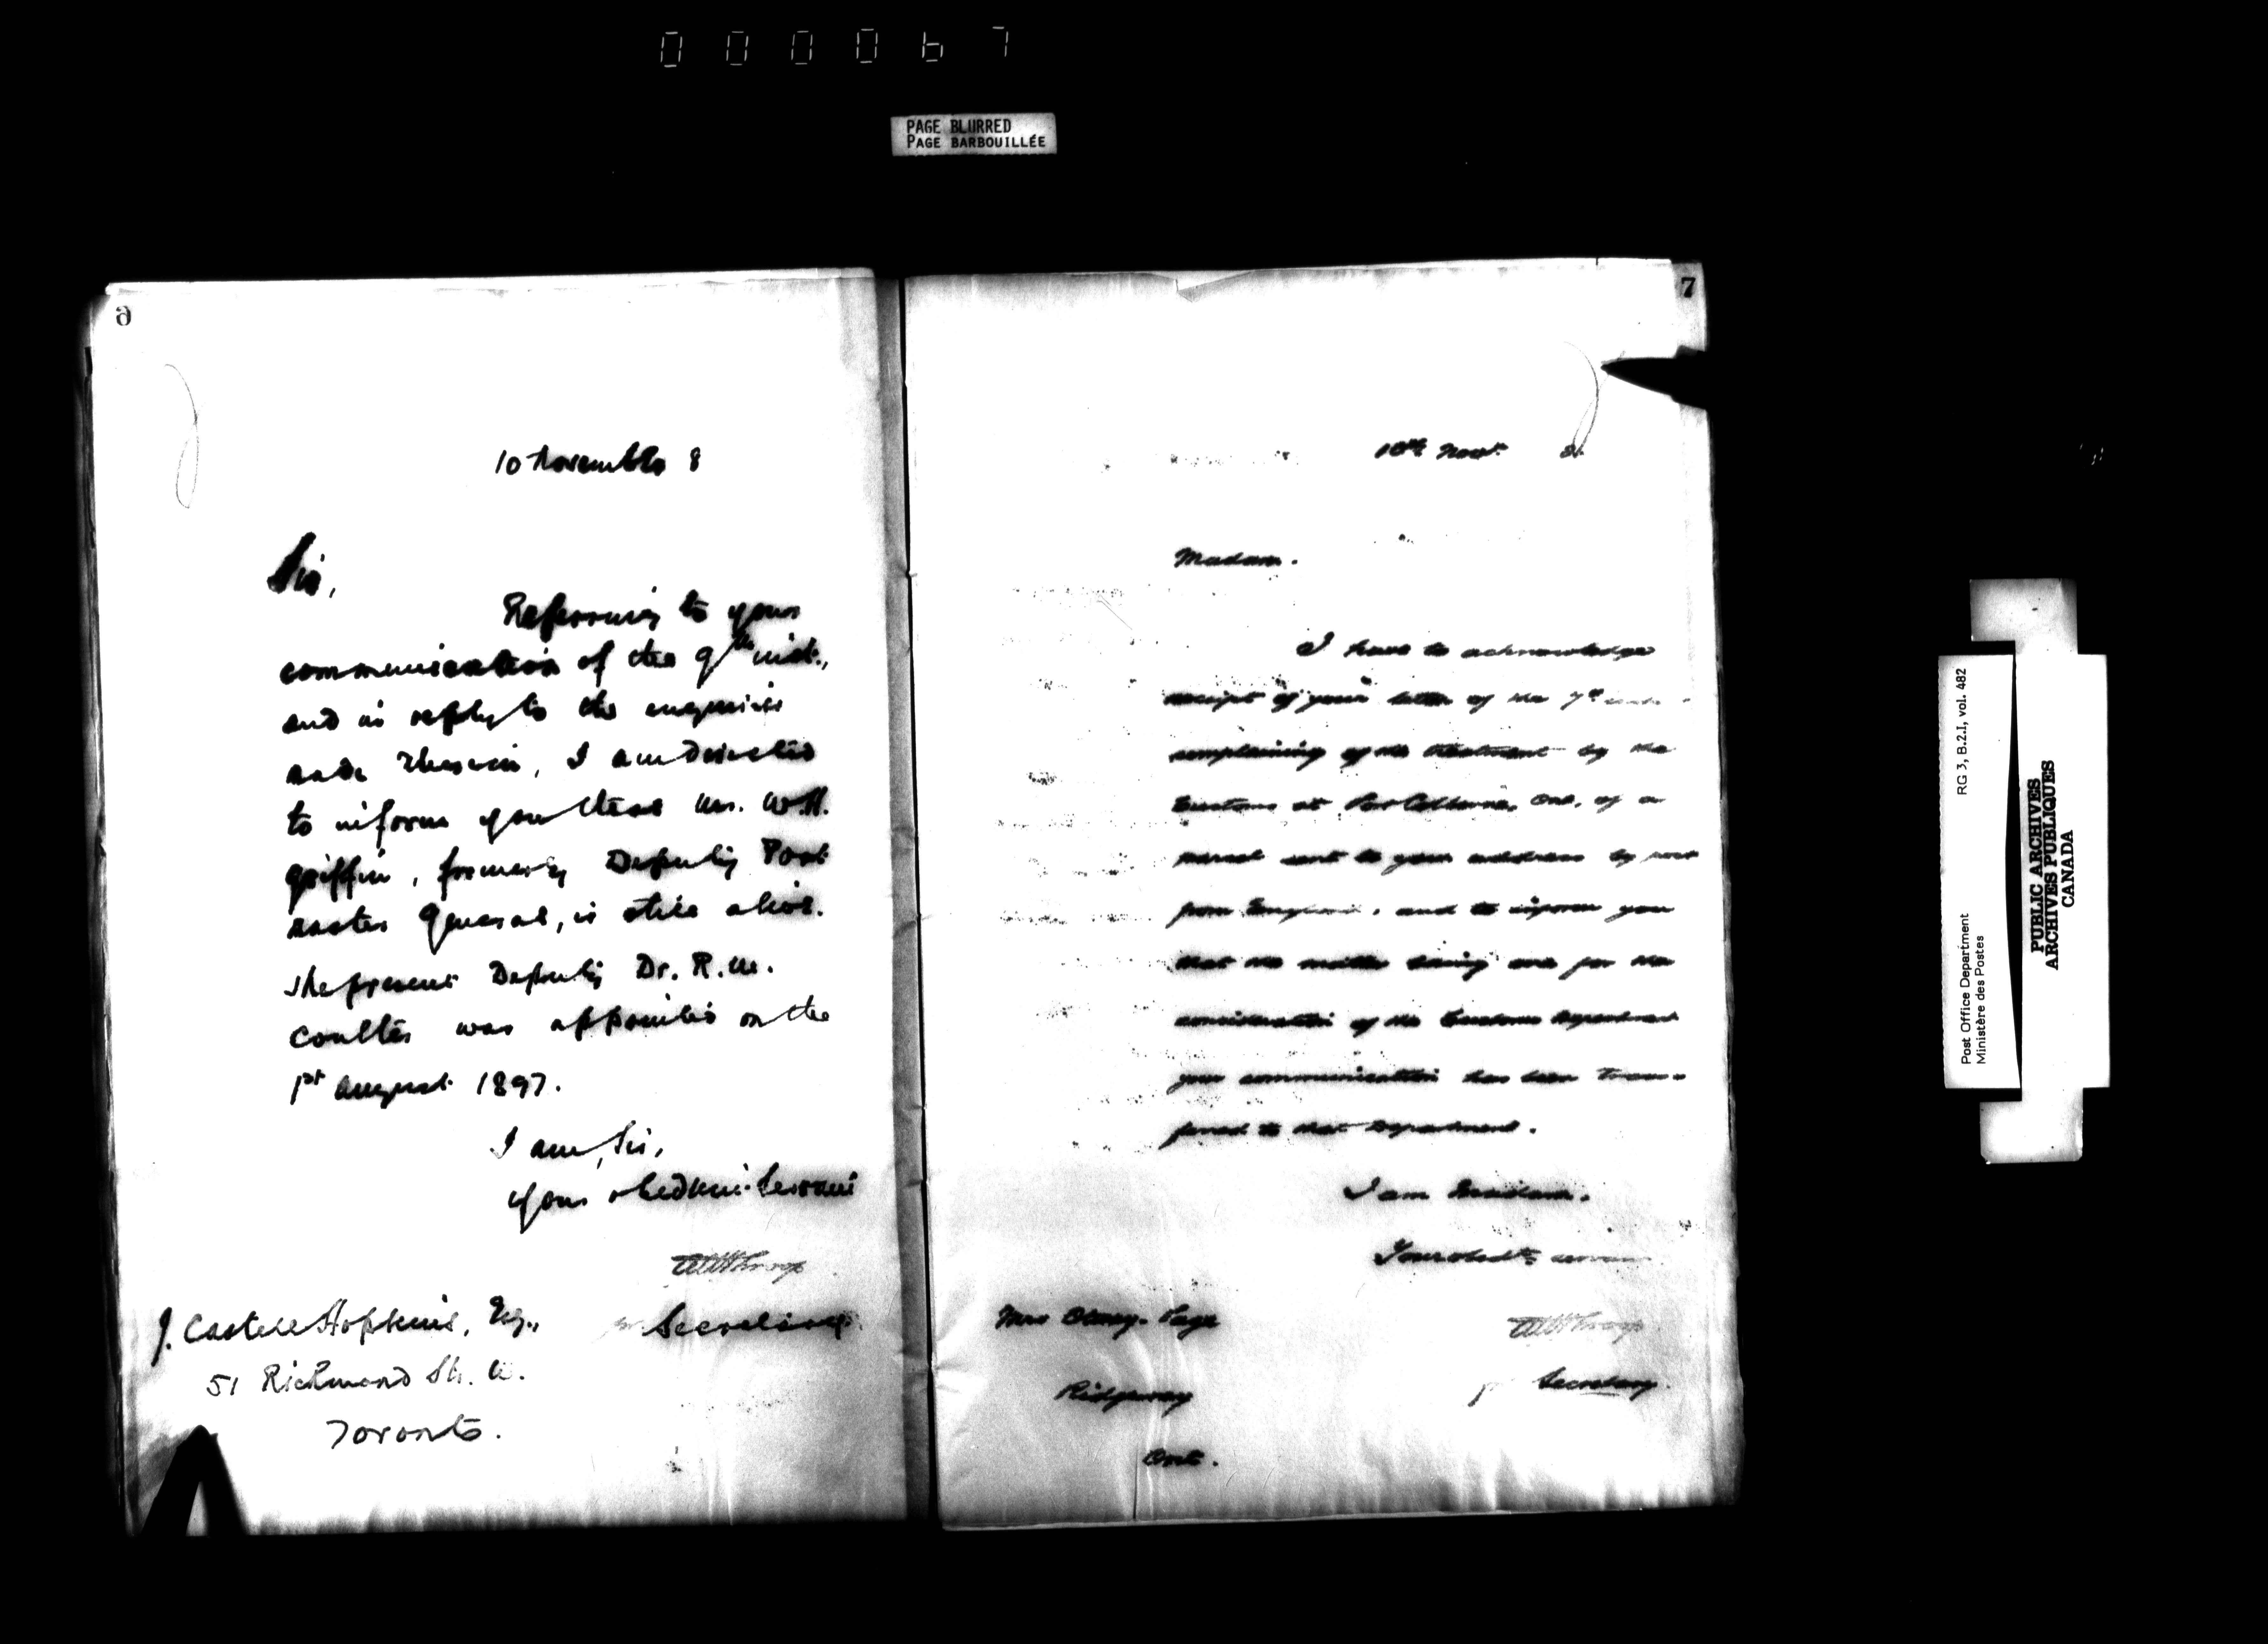 000067
PAGE BLURRED
PAGE BARBOUILLÉE
6
10 November 8
Sir,
Referring to your
communication of the 9th inst.,
and in reply to the enquiries
made therein, I am directed
to inform you that Mr. W.H.
Griffin, formerly Deputy Post
master General, is still alive.
The present Deputy Dr. R.M.
Coulter was appointed on the
1st August 1897.
I am, Sir,
Your obedient Servant
Secretary.
J. Castell Hopkins, Esq.,
51 Richmond St. W.
Toronto.
7
10th Novr. 8.
Madam.
I have to acknowledge
receipt of your letter of the 7th
complaining of the treatment by the
Customs at Port Colborne, Ont, of a
parcel sent to your address by post
from England, and to inform you
that the matter being one for the
consideration of the Customs Department
your communication has been trans-
ferred to that Department.
I am Madam.
Your obedt. servant
Mrs Page
Ridgeway
Ont.
Secretary.
Post Office Department
Ministère des Postes
RG 3, B.2.I, vol. 482
PUBLIC ARCHIVES
ARCHIVES PUBLIQUES
CANADA